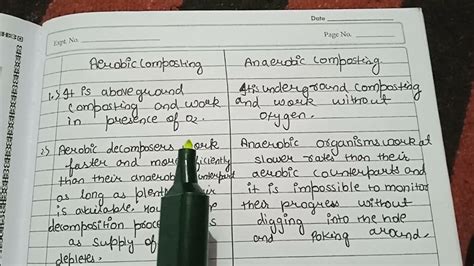 Date
Expt. No.
Page No.
Aerobic Composting
Anaerobic Composting
1.) It is above ground
composting and work
in presence of O2.
It is underground composting
and work without
oxygen.
2) Aerobic decomposers work
faster and more efficiently
than their anaerobic counterpart
as long as
is available.
decomposition
as supply of
depletes.
Anaerobic organisms work at
slower rates than their
aerobic counterparts and
it is impossible to monitor
their progress without
digging into the hole
and poking around.